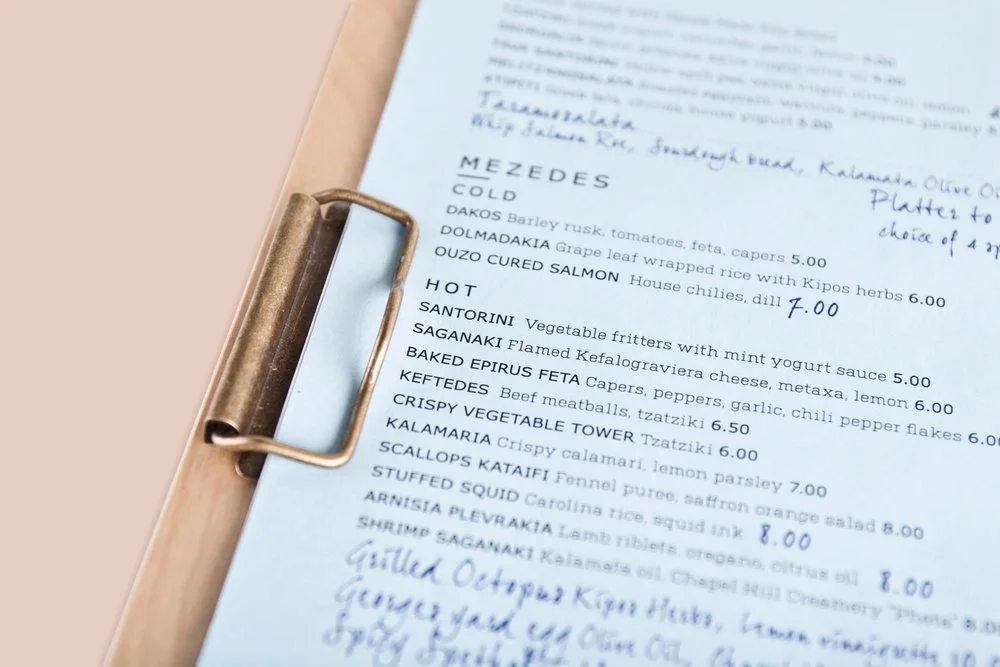 MELITZANOSALATA Roasted eggplant, walnuts, peppers, parsley
KTIPITI Greek feta, chilies, house yogurt 8.00
Taramosalata
Whip Salmon Roe, Sourdough bread, Kalamata Olive
MEZEDES
Platter to
COLD
choice of 4
DAKOS Barley rusk, tomatoes, feta, capers 5.00
DOLMADAKIA Grape leaf wrapped rice with Kipos herbs 6.00
OUZO CURED SALMON House chilies, dill 7.00
HOT
SANTORINI Vegetable fritters with mint yogurt sauce 5.00
SAGANAKI Flamed Kefalograviera cheese, metaxa, lemon 6.00
BAKED EPIRUS FETA Capers, peppers, garlic, chili pepper flakes 6.0
KEFTEDES Beef meatballs, tzatziki 6.50
CRISPY VEGETABLE TOWER Tzatziki 6.00
KALAMARIA Crispy calamari, lemon parsley 7.00
SCALLOPS KATAIFI Fennel puree, saffron orange salad 8.00
STUFFED SQUID Carolina rice, squid ink 8.00
ARNISIA PLEVRAKIA Lamb riblets, oregano, citrus oil 8.00
SHRIMP SAGANAKI Kalamata oil, Chapel Hill Creamery
Grilled Octopus Kipos Herbs, Lemon vinaigrette
Georges yard egg Olive Oil,